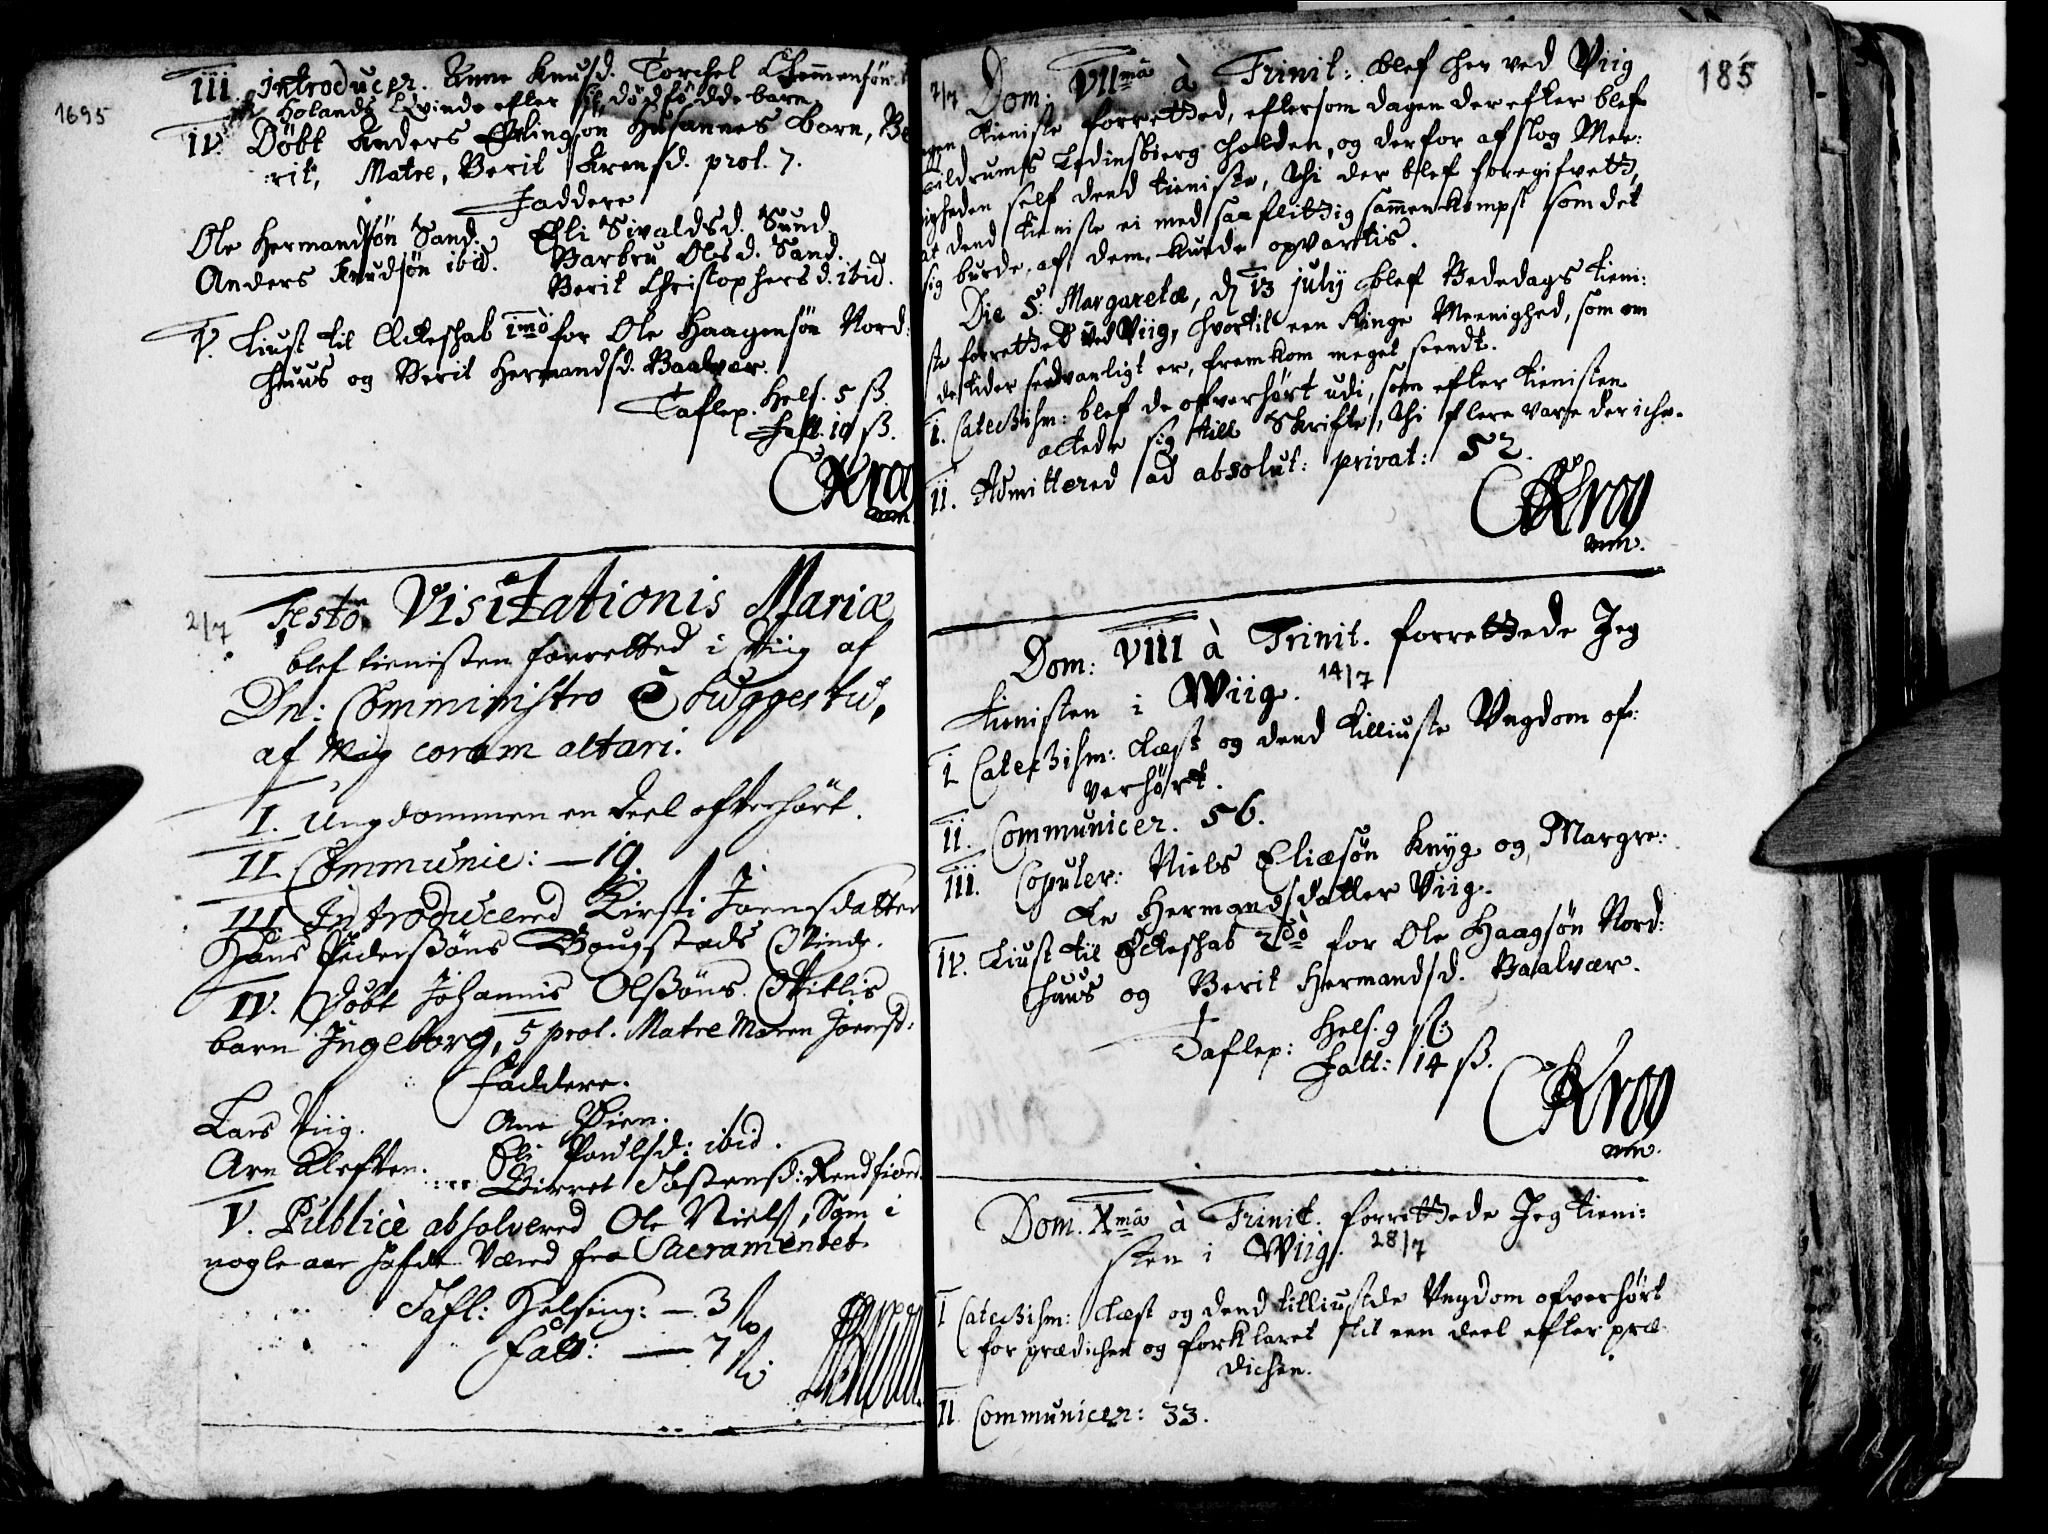 1695
III Introducer. Anne Knudsd. Torchel Clemmensøn
Holands Qvinde efter sit dødfødde barn.
IV. Døbt Anders Erlingsøn Husannes barn, Be
:rit, Matre, Berit Arensd. prol. 7.
Faddere
Ole Hermandsøn Sand. Elli Sivaldsd. Sund.
Anders Knudsøn ibid. Barbru Olsd. Sand.
Berit Christophersd. ibid.
V. Liust til Ecteskab 1mò for Ole Haagensøn Nord:
huus og Berit Hermandsd. Baalvær.
Taflep. Hels. 5 ß.
Fatt. 10 ß.
CKrog
mm.
2/7 Festo Visitationis Mariæ
blef tienisten forretted i Viig af
Dn: Comministro è suggestu,
af Mig coram altari.
I. Ungdommen en deel ofverhört.
II. Communic: — 19.
III Introducered Kirsti Joensdatter
Hans Pederßøns Gougstads Qvinde.
IV. Döbt Johannis Olßøns Vitlis
barn Ingeborg, 5 prol. Matre Maren Joensd:
Faddere.
Lars Viig. Ane Vien.
Arn Kleften. Eli Poulsd: ibid.
Birret Tostensd: Rendfiord.
V. Publicè absolvered Ole Niels, Som i
nogle aar hafde Væred fra Sacramentet
Tafl: Helsing: — 3 ß
Fatt: — 7 ß
185
2/7 Dom: VIIma à Trinit: blef her ved Viig
ingen tieniste forretted, eftersom dagen der efter blef
Guldrums Ledinsbierg holden, og derfor afslog Mee:
nigheden self dend tieniste, thi der blef foregifvett,
at dend tieniste ei med saa flittig sammenkompst som det
sig burde, af dem kunde opvartis.
Die S. Margaretæ, d. 13 julij blef Bededags tieni:
ste forretted ved Viig, hvortil een Ringe Meenighed, som om
de tider sedvanligt er, fremkom meget seendt.
I. Catechism: blef de ofverhørt udi, som efter tienisten
actede sig till Skrifte, thi flere vare der iche.
II. Admittered ad absolut: privat: 52.
CKrog
mm.
Dom: VIII à Trinit. forrettede Jeg
tienisten i Wiig. 14/7
I Catechism: Læst og dend tilliuste Ungdom of:
verhørt.
II. Communicer. 56.
III. Copuler: Niels Eliæsøn Knyg og Margre:
te Hermandsdatter Viig.
IV. Liust til Ecteskab 2dò for Ole Haagsøn Nord:
huus og Berit Hermandsd. Baalvær.
Taflep: Hels. 9 ß
Fatt: 14 ß.
CKrog
mm.
Dom. Xma à Trinit. forrettede Jeg tieni:
sten i Wiig. 28/7
I Catechism: Læst og dend tilliuste Ungdom ofverhørt
for prædichen og forklaret til een deel efter præ
dichen.
II Communicer: 33.